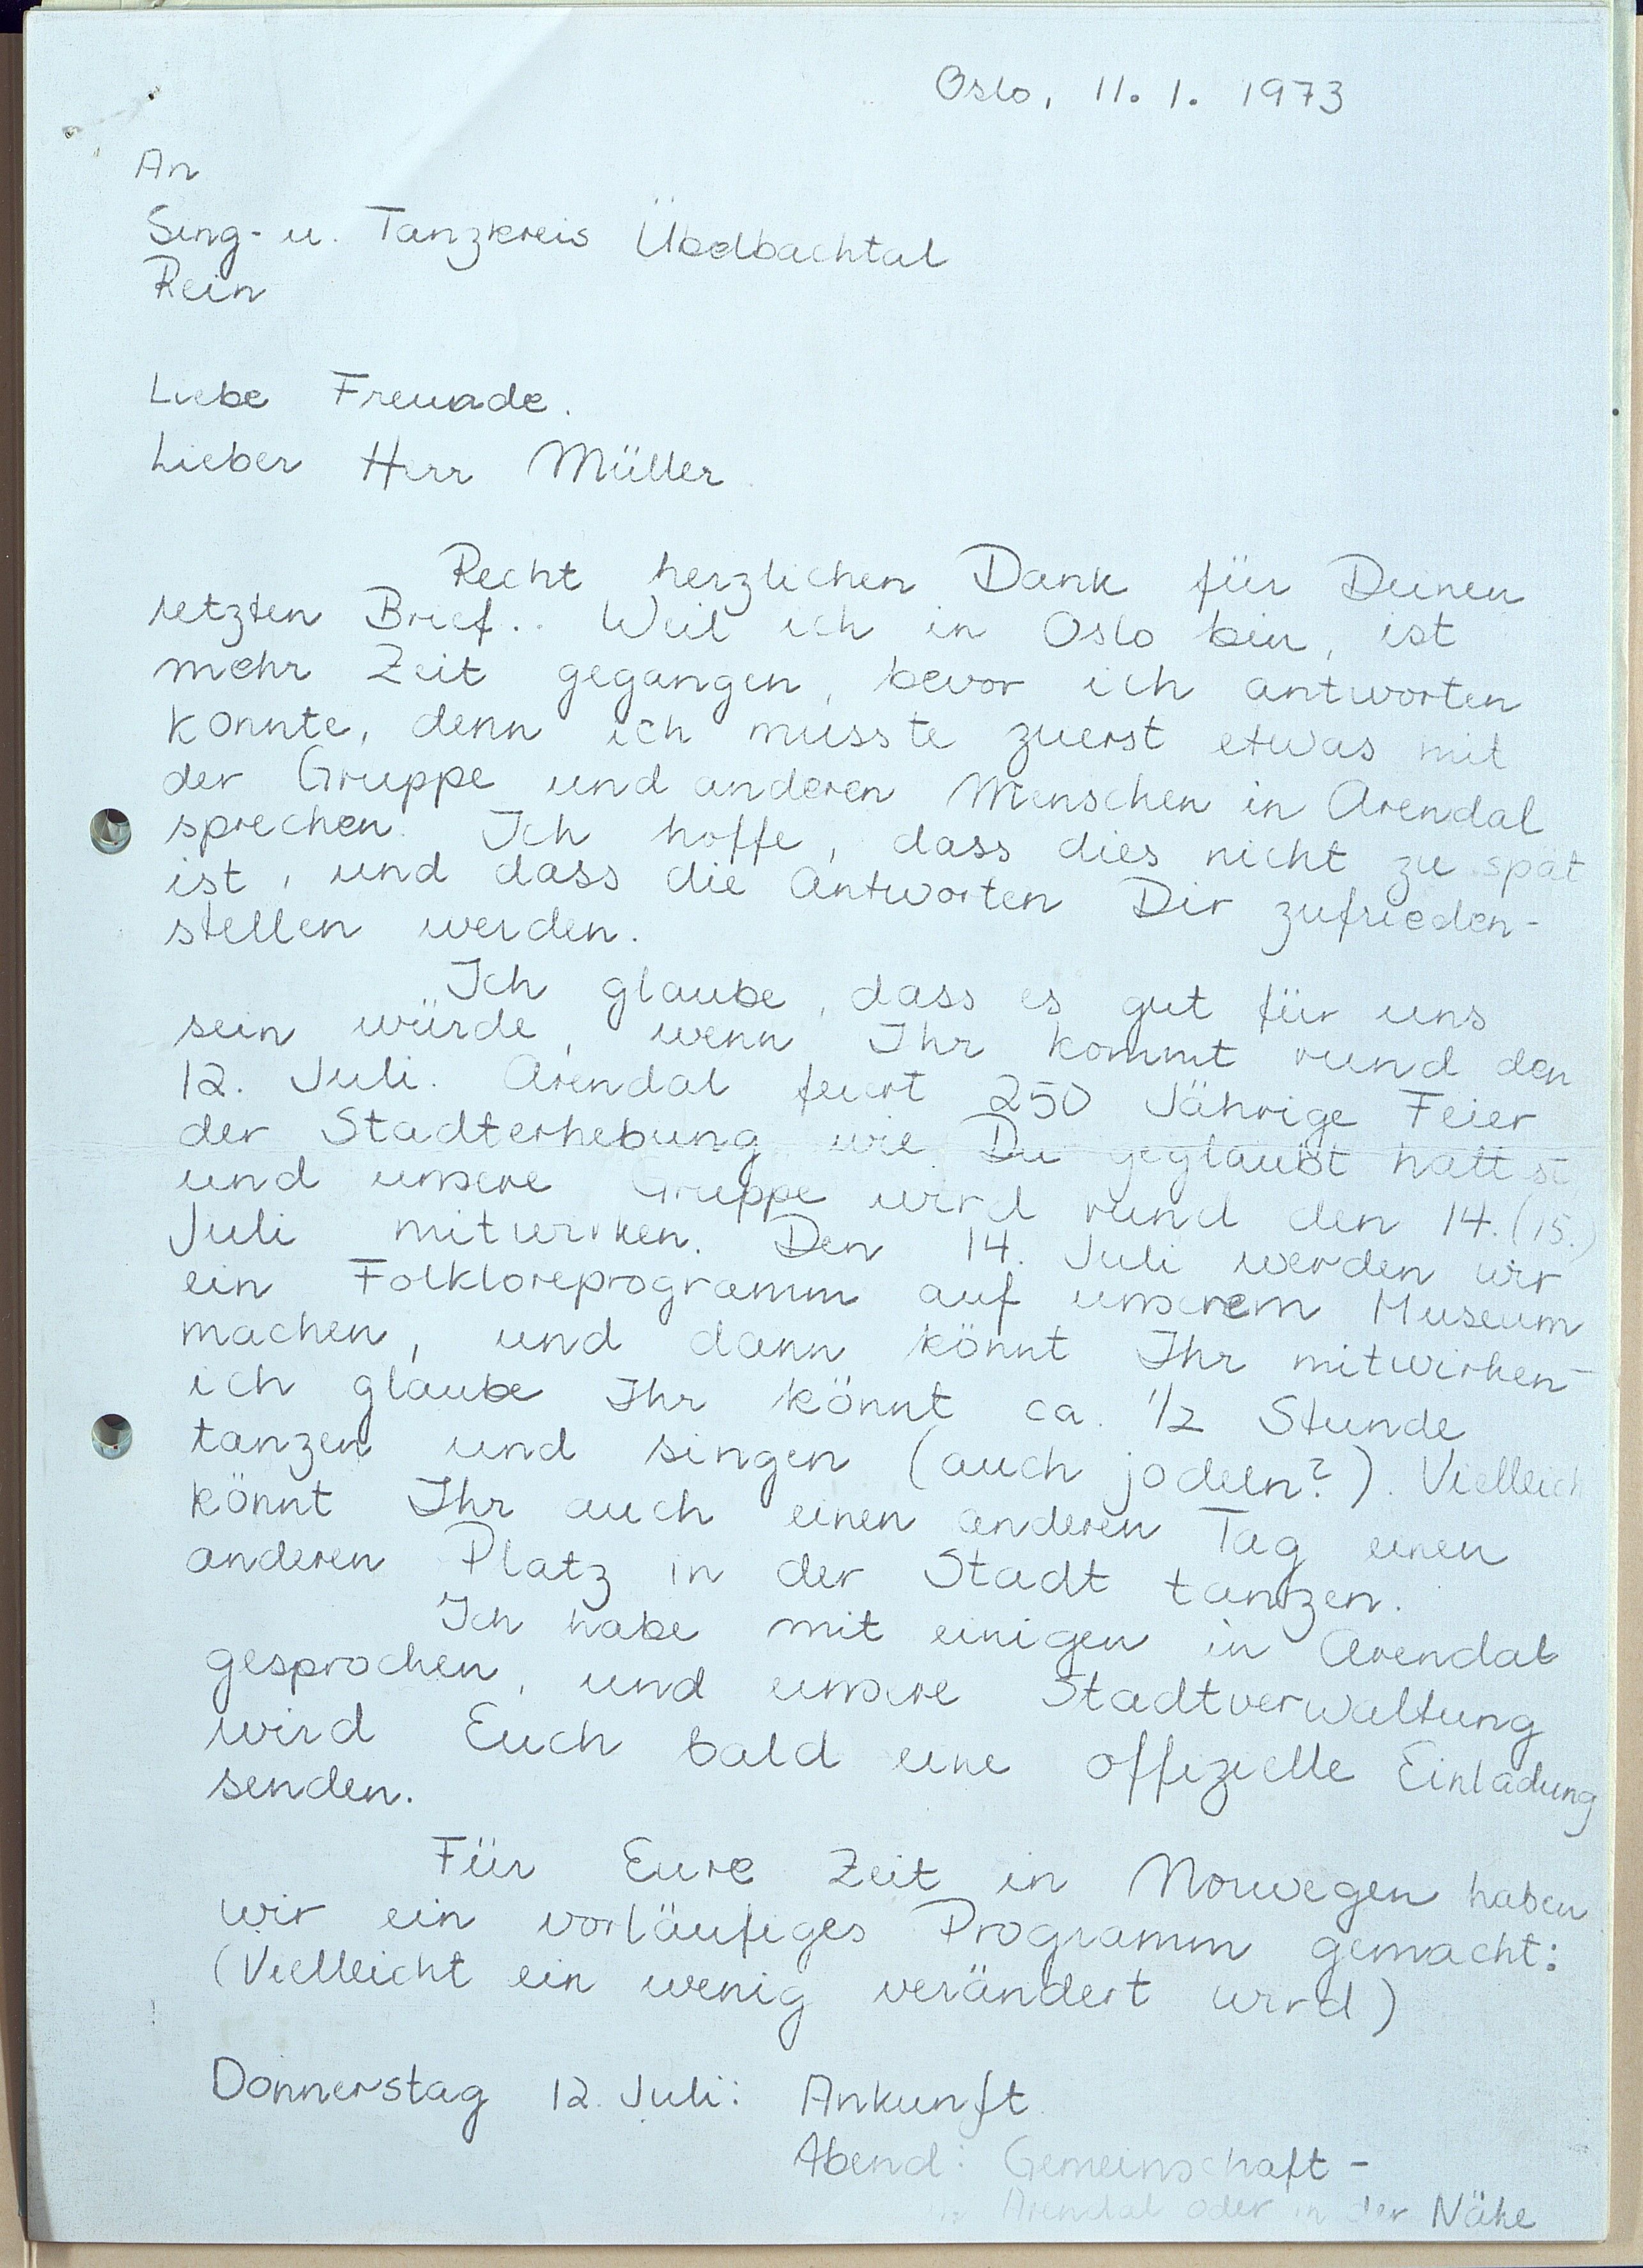 Oslo, 11. 1. 1973
An
Sing- u. Tanzkreis Übelbachtal
Rein
Liebe Freunde.
Lieber Herr Müller
Recht herzlichen Dank für Deinen
letzten Brief.. Weil ich in Oslo bin, ist
mehr Zeit gegangen, bevor ich antworten
konnte, denn ich musste zuerst etwas mit
der Gruppe und anderen Menschen in Arendal
sprechen. Ich hoffe, dass dies nicht zu spät
ist, und dass die Antworten Dir zufrieden-
stellen werden.
Ich glaube, dass es gut für uns
sein würde, wenn Ihr kommt rund den
12. Juli. Arendal feiert 250 Jährige Feier
der Stadterhebung wie Du geglaubt hattst
und unsere Gruppe wird rund den 14. (15.)
Juli mitwirken. Den 14. Juli werden wir
ein Folkloreprogramm auf unserem Museum
machen, und dann könnt Ihr mitwirken -
ich glaube Ihr könnt ca. 1/2 Stunde
tanzen und singen (auch jodeln?). Vielleich
könnt Ihr auch einen anderen Tag einen
anderen Platz in der Stadt tantzen.
Ich habe mit einigen in Arendal
gesprochen, und unsere Stadtverwaltung
wird Euch bald eine offizielle Einladung
senden.
Für Eure Zeit in Norwegen haben
wir ein vorläufiges Programm gemacht:
(Vielleicht ein wenig verändert wird)
Donnerstag 12. Juli: Ankunft.
Abend: Gemeinschaft -
in Arendal oder in der Nähe